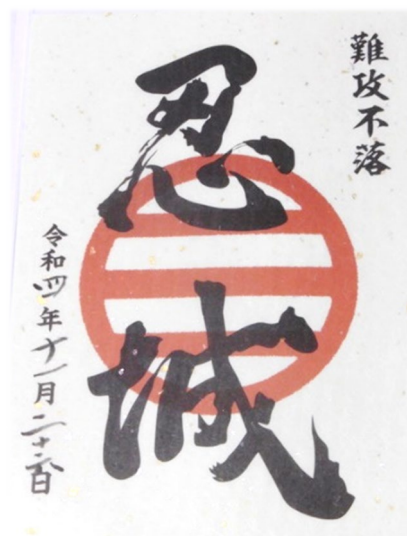 難攻不落
忍城
令和四年十一月二十六日